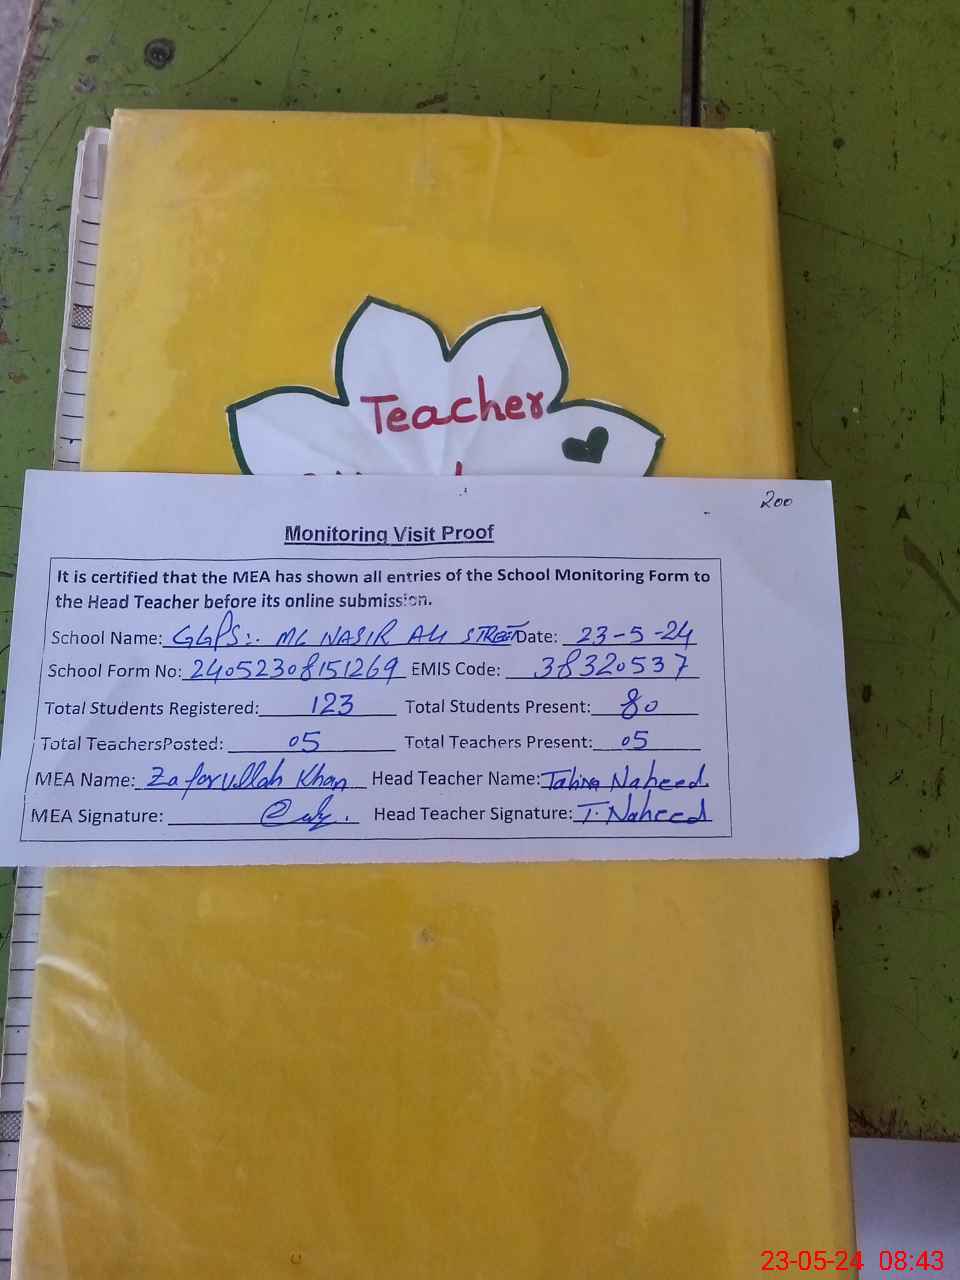 Teacher
200
Monitoring Visit Proof
It is certified that the MEA has shown all entries of the School Monitoring Form to
the Head Teacher before its online submission.
School Name: GGPS:. MC NASIR ALI STREET Date: 23-5-24
School Form No: 24052308151269 EMIS Code: 38320537
Total Students Registered: 123 Total Students Present: 80
Total TeachersPosted: 05 Total Teachers Present: 05
MEA Name: Zafarullah Khan Head Teacher Name: Naheed
MEA Signature: Head Teacher Signature: T. Naheed
23-05-24 08:43